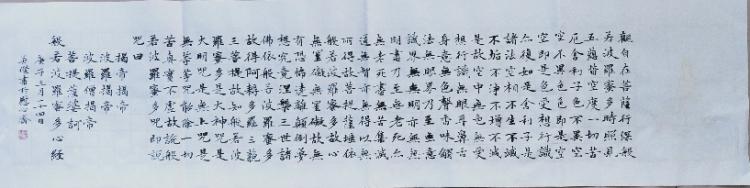 觀自在菩薩行深般
若波羅蜜多時照見
五蘊皆空度一切苦
厄舍利子色不異空
空不異色色即是空
空即是色受想行識
亦復如是舍利子是
諸法空相不生不滅
不垢不淨不增不減
是故空中無色無受
想行識無眼耳鼻舌
身意無色聲香味觸
法無眼界乃至無意
識界無無明亦無無
明盡乃至無老死亦
無老死盡無苦集滅
道無智亦無得以無
所得故菩提薩埵依
般若波羅蜜多故心
無罣礙無罣礙故無
有恐怖遠離顛倒夢
想究竟涅槃三世諸
佛依般若波羅蜜多
故得阿耨多羅三藐
三菩提故知般若波
羅蜜多是大神咒是
大明咒是無上咒是
無等等咒能除一切
苦真實不虛故說般
若波羅蜜多咒即說
咒曰
揭帝揭帝
波羅揭帝
波羅僧揭帝
菩提薩婆訶
般若波羅蜜多心經
庚子月二十四日
書於心齋